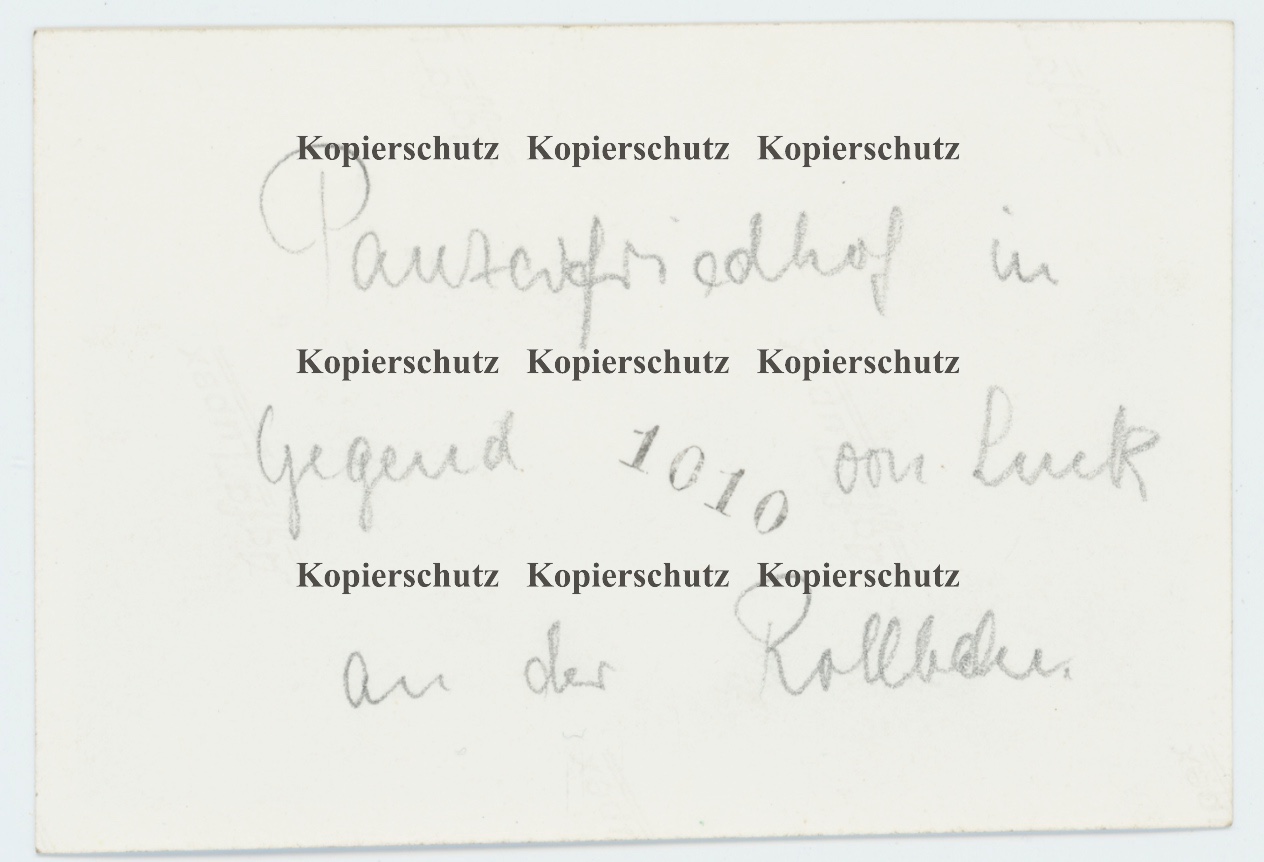 Kopierschutz Kopierschutz Kopierschutz
Panzerfriedhof in
Kopierschutz Kopierschutz Kopierschutz
Gegend 1010 von Luck
Kopierschutz Kopierschutz Kopierschutz
an der Rollbahn.